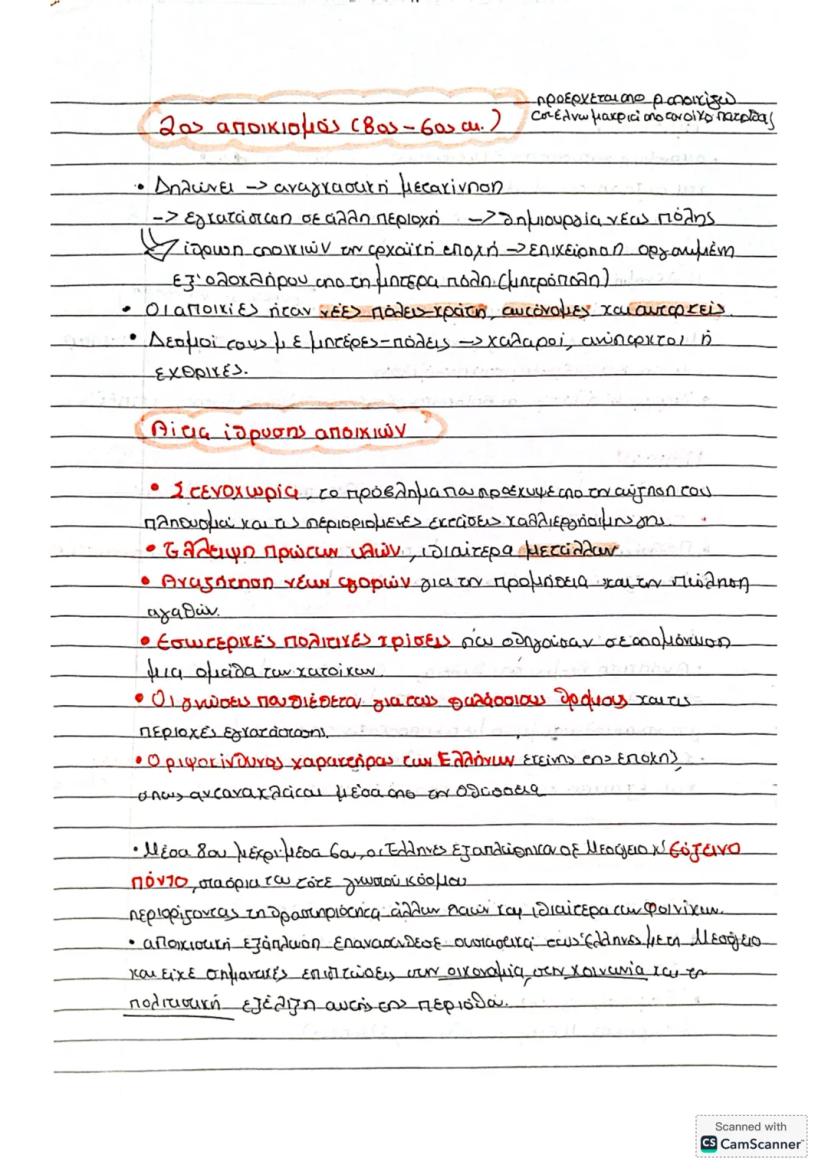 προέρχεται απο ρ αποικίζω
στέλνω μακριά απο τον οίκο πατρίδας
2ος αποικισμός (8ος - 6ος αι.)
• Δηλώνει -> αναγκαστική μετακίνηση
-> εγκατάσταση σε άλλη περιοχή -> δημιουργία νέας πόλης
ίδρυση αποικιών την αρχαϊκή εποχή -> επιχείρηση οργανωμένη
εξ' ολοκλήρου απο τη μητέρα πόλη (μητρόπολη)
• Οι αποικίες ήταν νέες πόλεις-κράτη, αυτόνομες και αυταρκείς
• Δεσμοί τους με μητέρες-πόλεις -> χαλαροί, ανύπαρκτοι ή
εχθρικές.
Αίτια ίδρυσης αποικιών
• Στενοχωρία, το πρόβλημα που προέκυψε απο την αύξηση του
πληθυσμού και τις περιορισμένες εκτάσεις καλλιεργήσιμης γης.
• Έλλειψη πρώτων υλών, ιδιαίτερα μετάλλων
• Αναζήτηση νέων αγορών για την προμήθεια και την πώληση
αγαθών.
• Εσωτερικές πολιτικές κρίσεις που οδηγούσαν σε απομόνωση
μια ομάδα των κατοίκων.
• Οι γνώσεις που διέθεταν για τους θαλάσσιους δρόμους και τις
περιοχές εγκατάστασης.
• Ο ριψοκίνδυνος χαρακτήρας των Ελλήνων εκείνης της εποχής
όπως αντανακλάται μέσα απο την Οδύσσεια
• Μέσα 8ου μέχρι μέσα 6ου, οι Έλληνες εξαπλώθηκαν σε Μεσόγειο κ' Εύξεινο
πόντο, στα όρια του τότε γνωστού κόσμου
περιορίζοντας τη δραστηριότητα άλλων λαών και ιδιαίτερα των Φοινίκων.
• αποικιακή εξάπλωση επανασυνέδεσε ουσιαστικά τους Έλληνες με τη Μεσόγειο
και είχε σημαντικές επιπτώσεις στην οικονομία, στην κοινωνία και τη
πολιτιστική εξέλιξη αυτής της περιόδου.
Scanned with
CS CamScanner